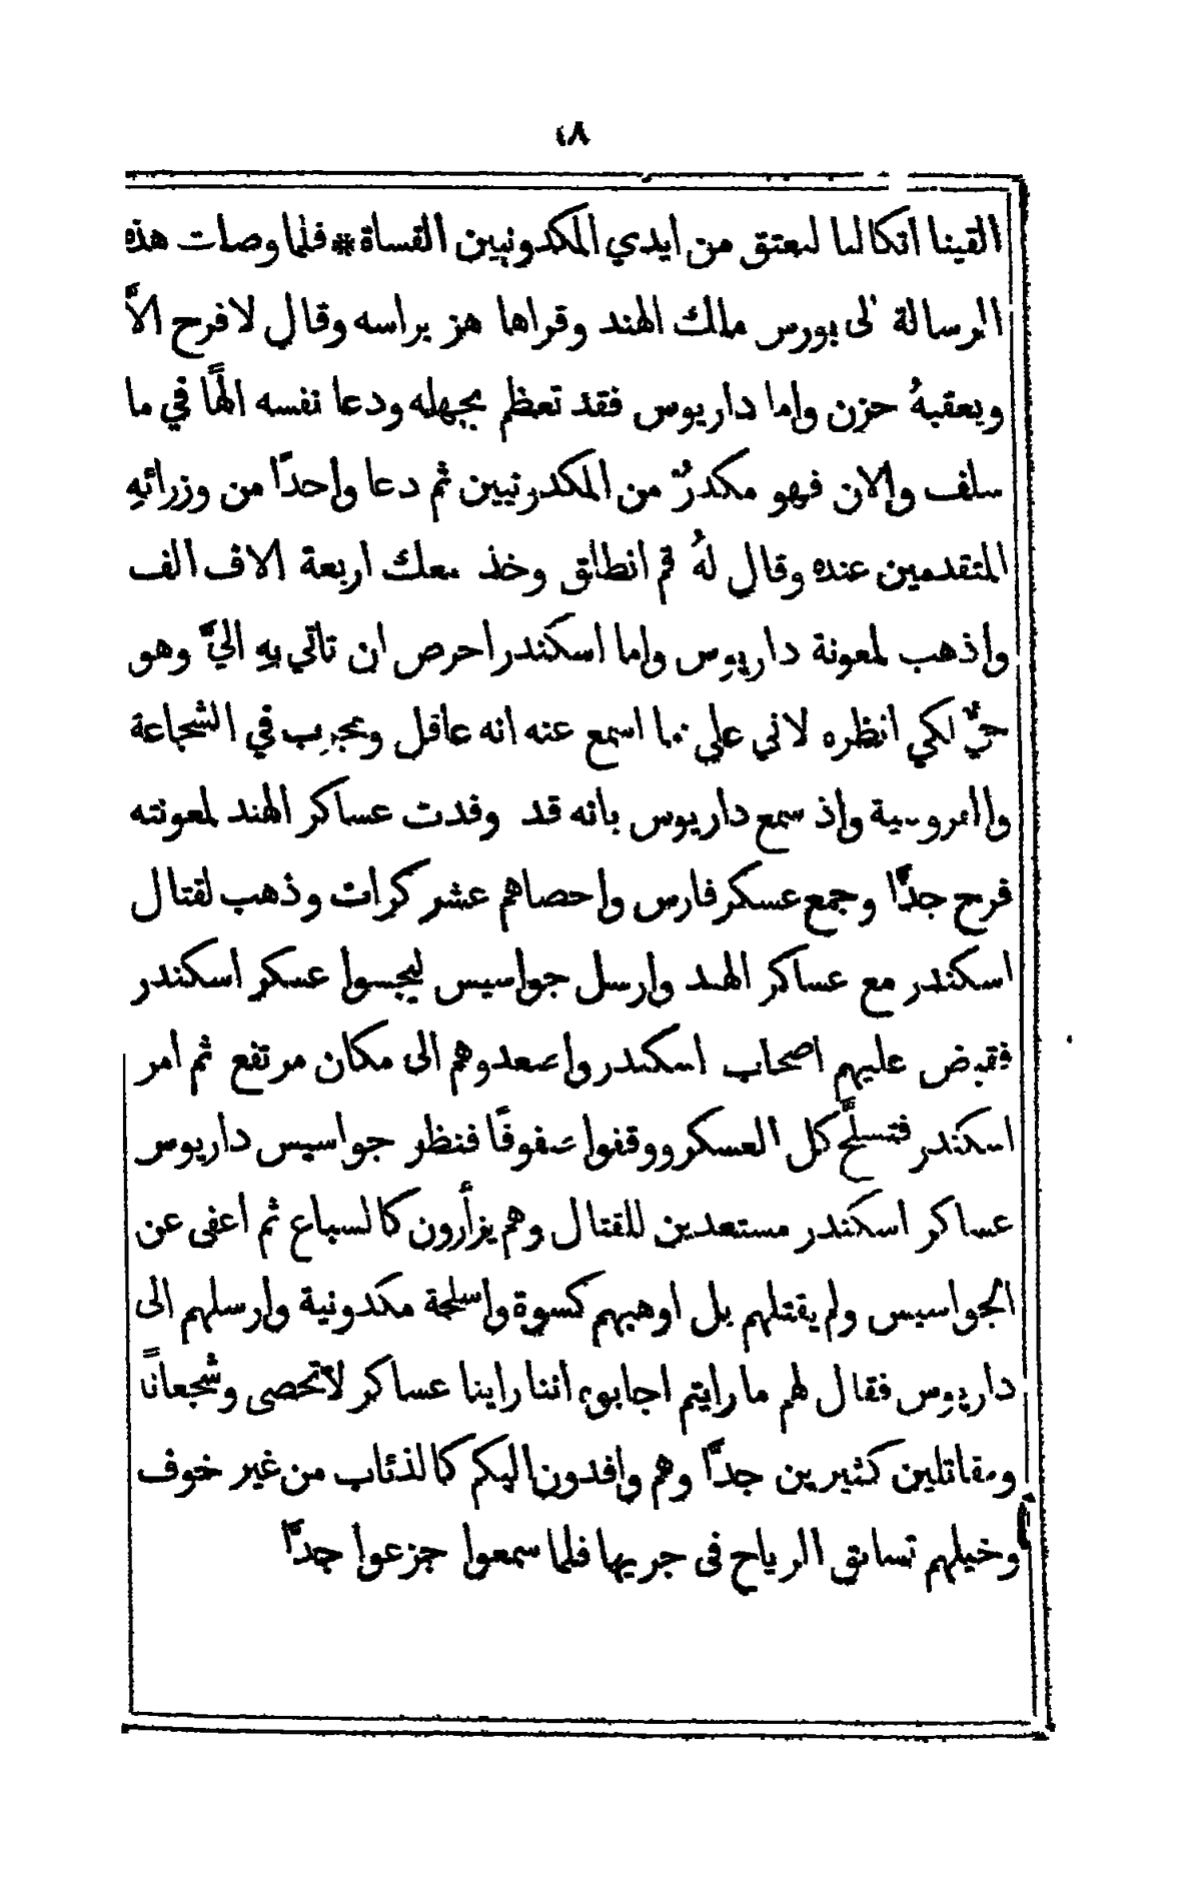 ٤٨
القينا اتكالنا لنعتق من ايدي المكدونيين القساة * فلما وصلت هذه
الرسالة الى بورس مالك الهند وقراها هز براسه وقال لا فرح الاَّ
ويعقبهُ حزن واما داريوس فقد تعظم بجهله ودعا نفسه الهًا في ما
سلف والان فهو مكدرٌ من المكدونيين ثم دعا واحدًا من وزرائهِ
المتقدمين عنده وقال لهُ قم انطلق وخذ معك اربعة الاف الف
واذهب لمعونة داريوس واما اسكندر احرص ان تاتي بهِ اليَّ وهو
حيٌّ لكي انظره لاني علي ما اسمع عنه انه عاقل ومجرب في الشجاعة
والفروسية واذ سمع داريوس بانه قد وفدت عساكر الهند لمعونته
فرح جدًّا وجمع عسكر فارس واحصاهم عشر كرات وذهب لقتال
اسكندر مع عساكر الهند وارسل جواسيس ليجسوا عسكر اسكندر
فقبض عليهم اصحاب اسكندر واصعدوهم الى مكان مرتفع ثم امر
اسكندر فتسلَّح كل العسكر ووقفوا صفوفًا فنظر جواسيس داريوس
عساكر اسكندر مستعدين للقتال وهم يزأرون كالسباع ثم اعفى عن
الجواسيس ولم يقتلهم بل اوهبهم كسوة واسلحة مكدونية وارسلهم الى
داريوس فقال لهم ما رايتم اجابوه اننا راينا عساكر لا تحصى وشجعانًا
ومقاتلين كثيرين جدًّا وهم وافدون اليكم كالذئاب من غير خوف
وخيلهم تسابق الرياح في جريها فلما سمعوا جزعوا جدًّا